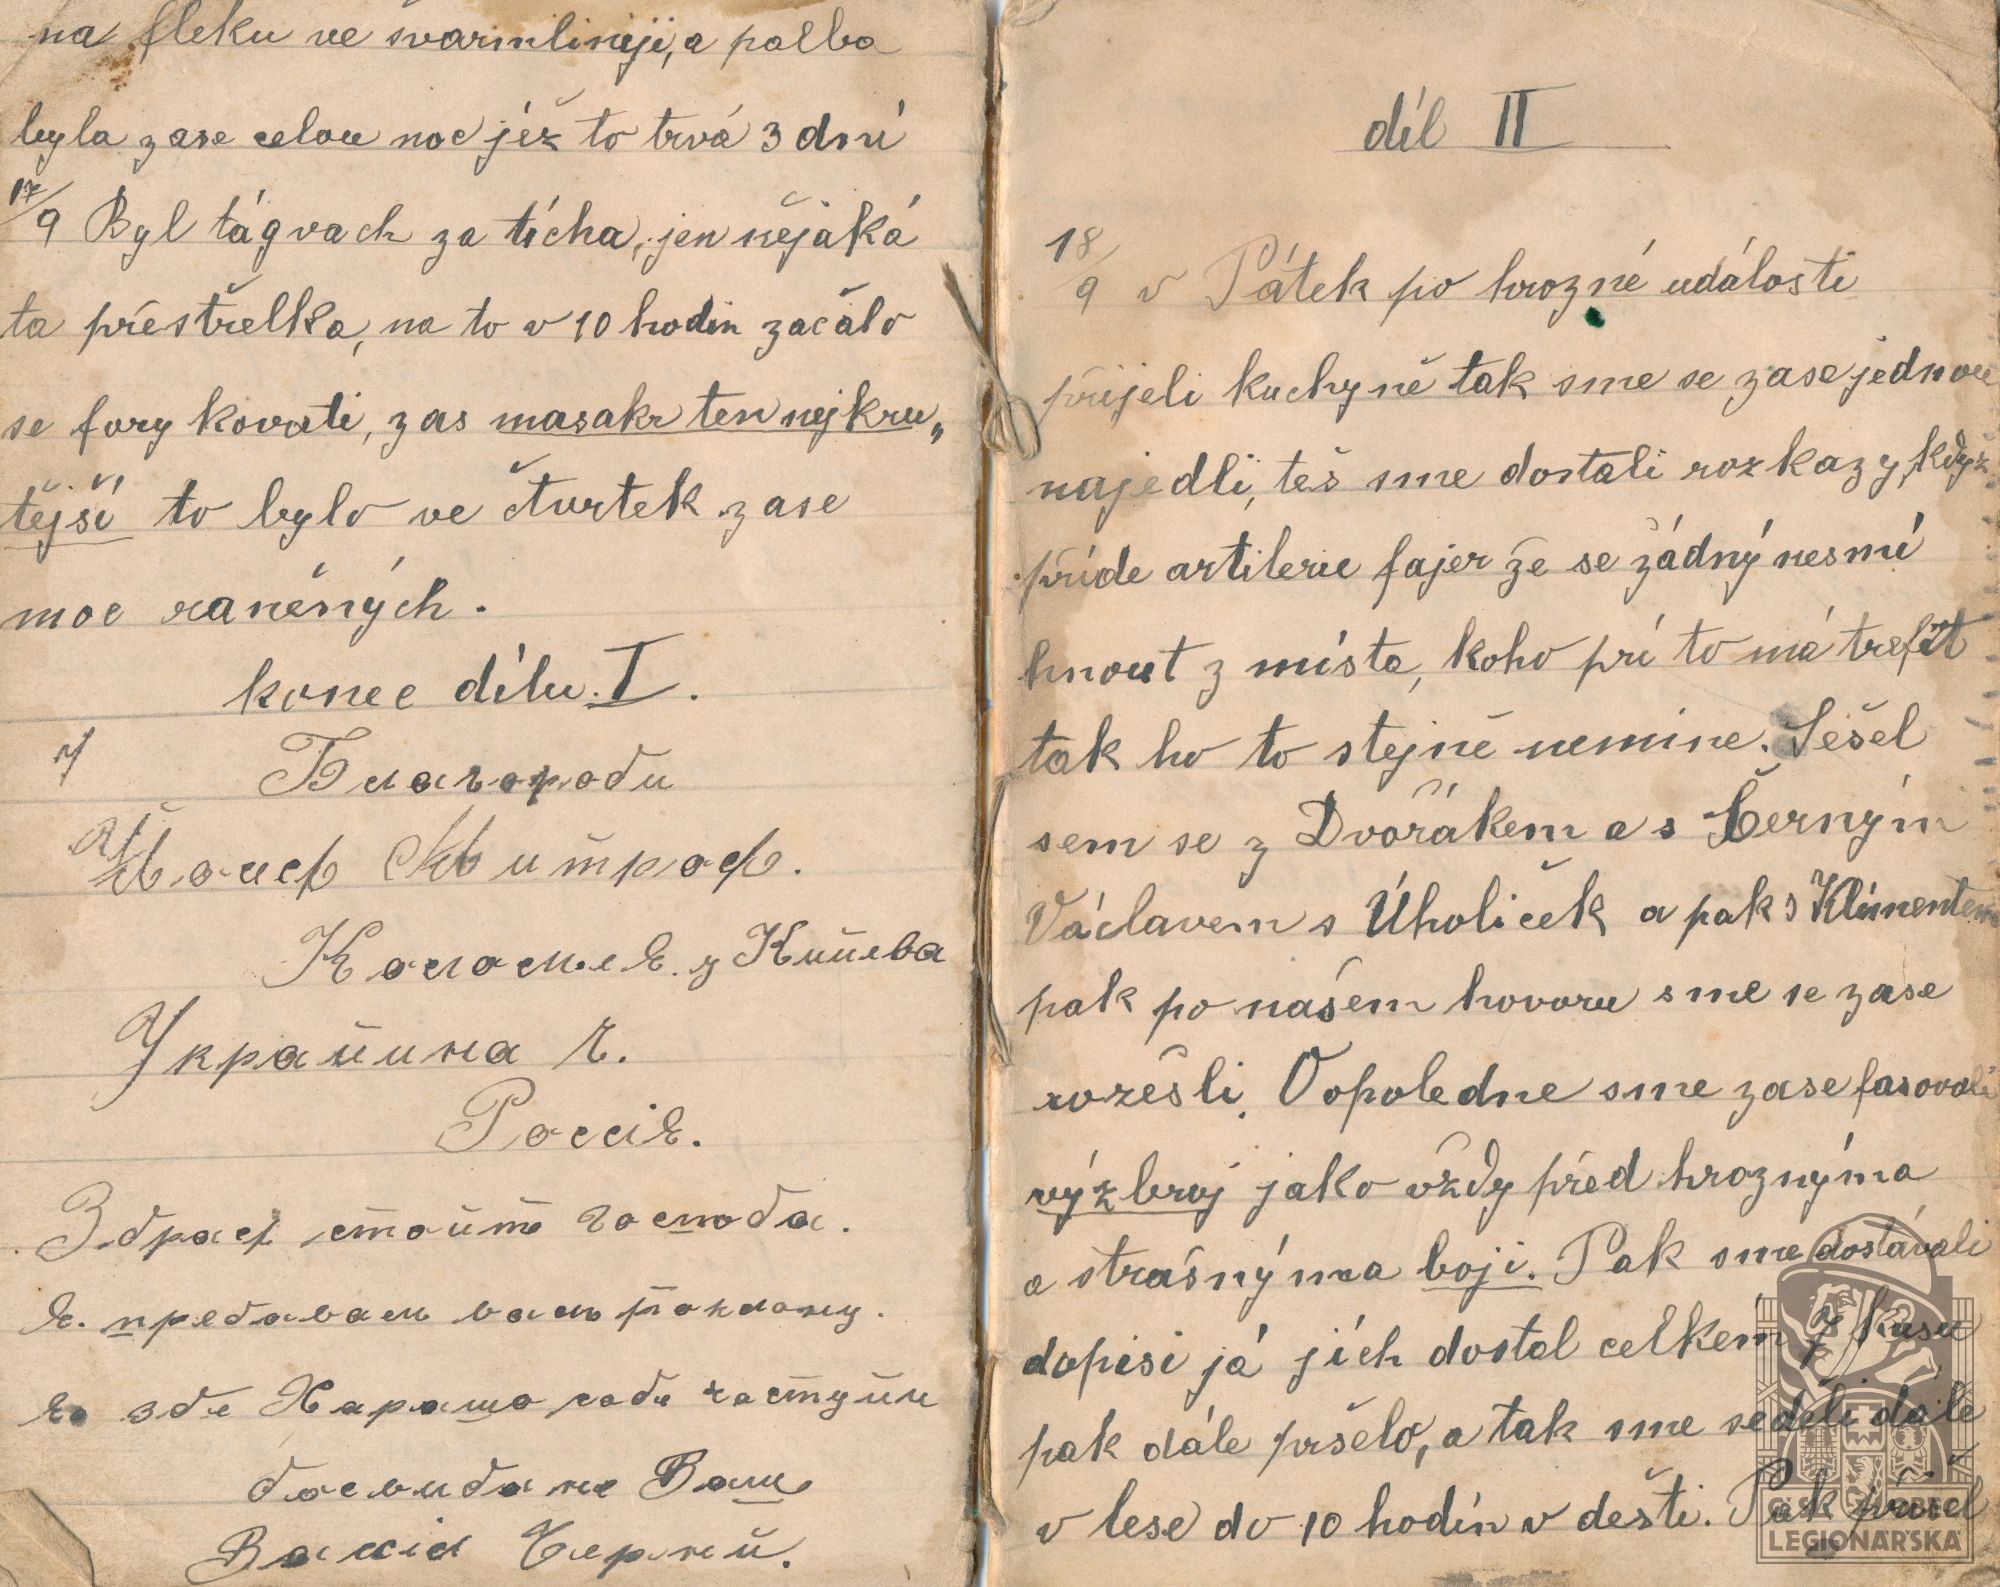 na fleku ve švarmliniji, a palba
byla zase celou noc jéž to trvá 3 dní
17/9 Byl tágvach za tícha, jen nějaká
ta přestřelka, na to v 10 hodin začalo
se fory kovati, zas masakr ten nejkru„
tějši to bylo ve čtvrtek zase
moc raněných.
konec dílu. I.
Благороди
Митроф.
з Кийева
Украйина
Россія.
Здраф стойт господа.
Я. предавам вам поклону.
зде Харашо
досвидание Ваш
Черний.
díl II
18/9 v Pátek po hrozné události
přijeli kuchyně tak sme se zase jednou
najedli, teš sme dostali rozkazy, když
příde artilerie fajer že se žádný nesmí
hnout z místa, koho pří to má trefit
tak ho to stejně nemine. Sešel
sem se z Dvořákem a s Černým
Václavem s Úholiček a pak s Klimentem
pak po našem hovoru sme se zase
rozešli. Oopoledne sme zase fasovali
výzbroj jako vždy před hroznýma
a strašnýma boji. Pak sme dostávali
dopisi já jích dostal celkém 7 kusu
pak dále pršelo, a tak sme seděli dále
v lese do 10 hodín v dešti. Pak přišel
ČSK OBEC
LEGIONÁŘSKÁ